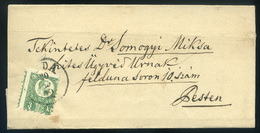 Tekintetes Dr Somogyi Miksa
Hites Ügyvéd Urnak
feldunasoron 10. szám
Pesten